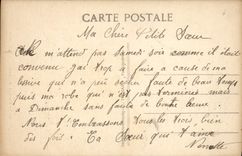 CARTE POSTALE
Ma Chère Petite Sœur
Ne m'attend pas Samedi Soir comme il était
convenu j'ai trop à faire a cause de ma
lessive qui n'a peu sécher faute de beau temps
puis ma robe qui n'est pas terminée mais
a Dimanche sans faute de bonne heure.
Nous t'Embrassons tous les trois bien
des fois. Ta Sœur qui t'aime